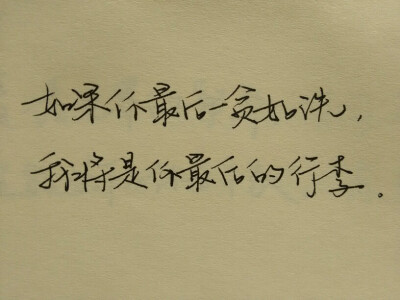 如果你最后一贫如洗，
我将是你最后的行李.